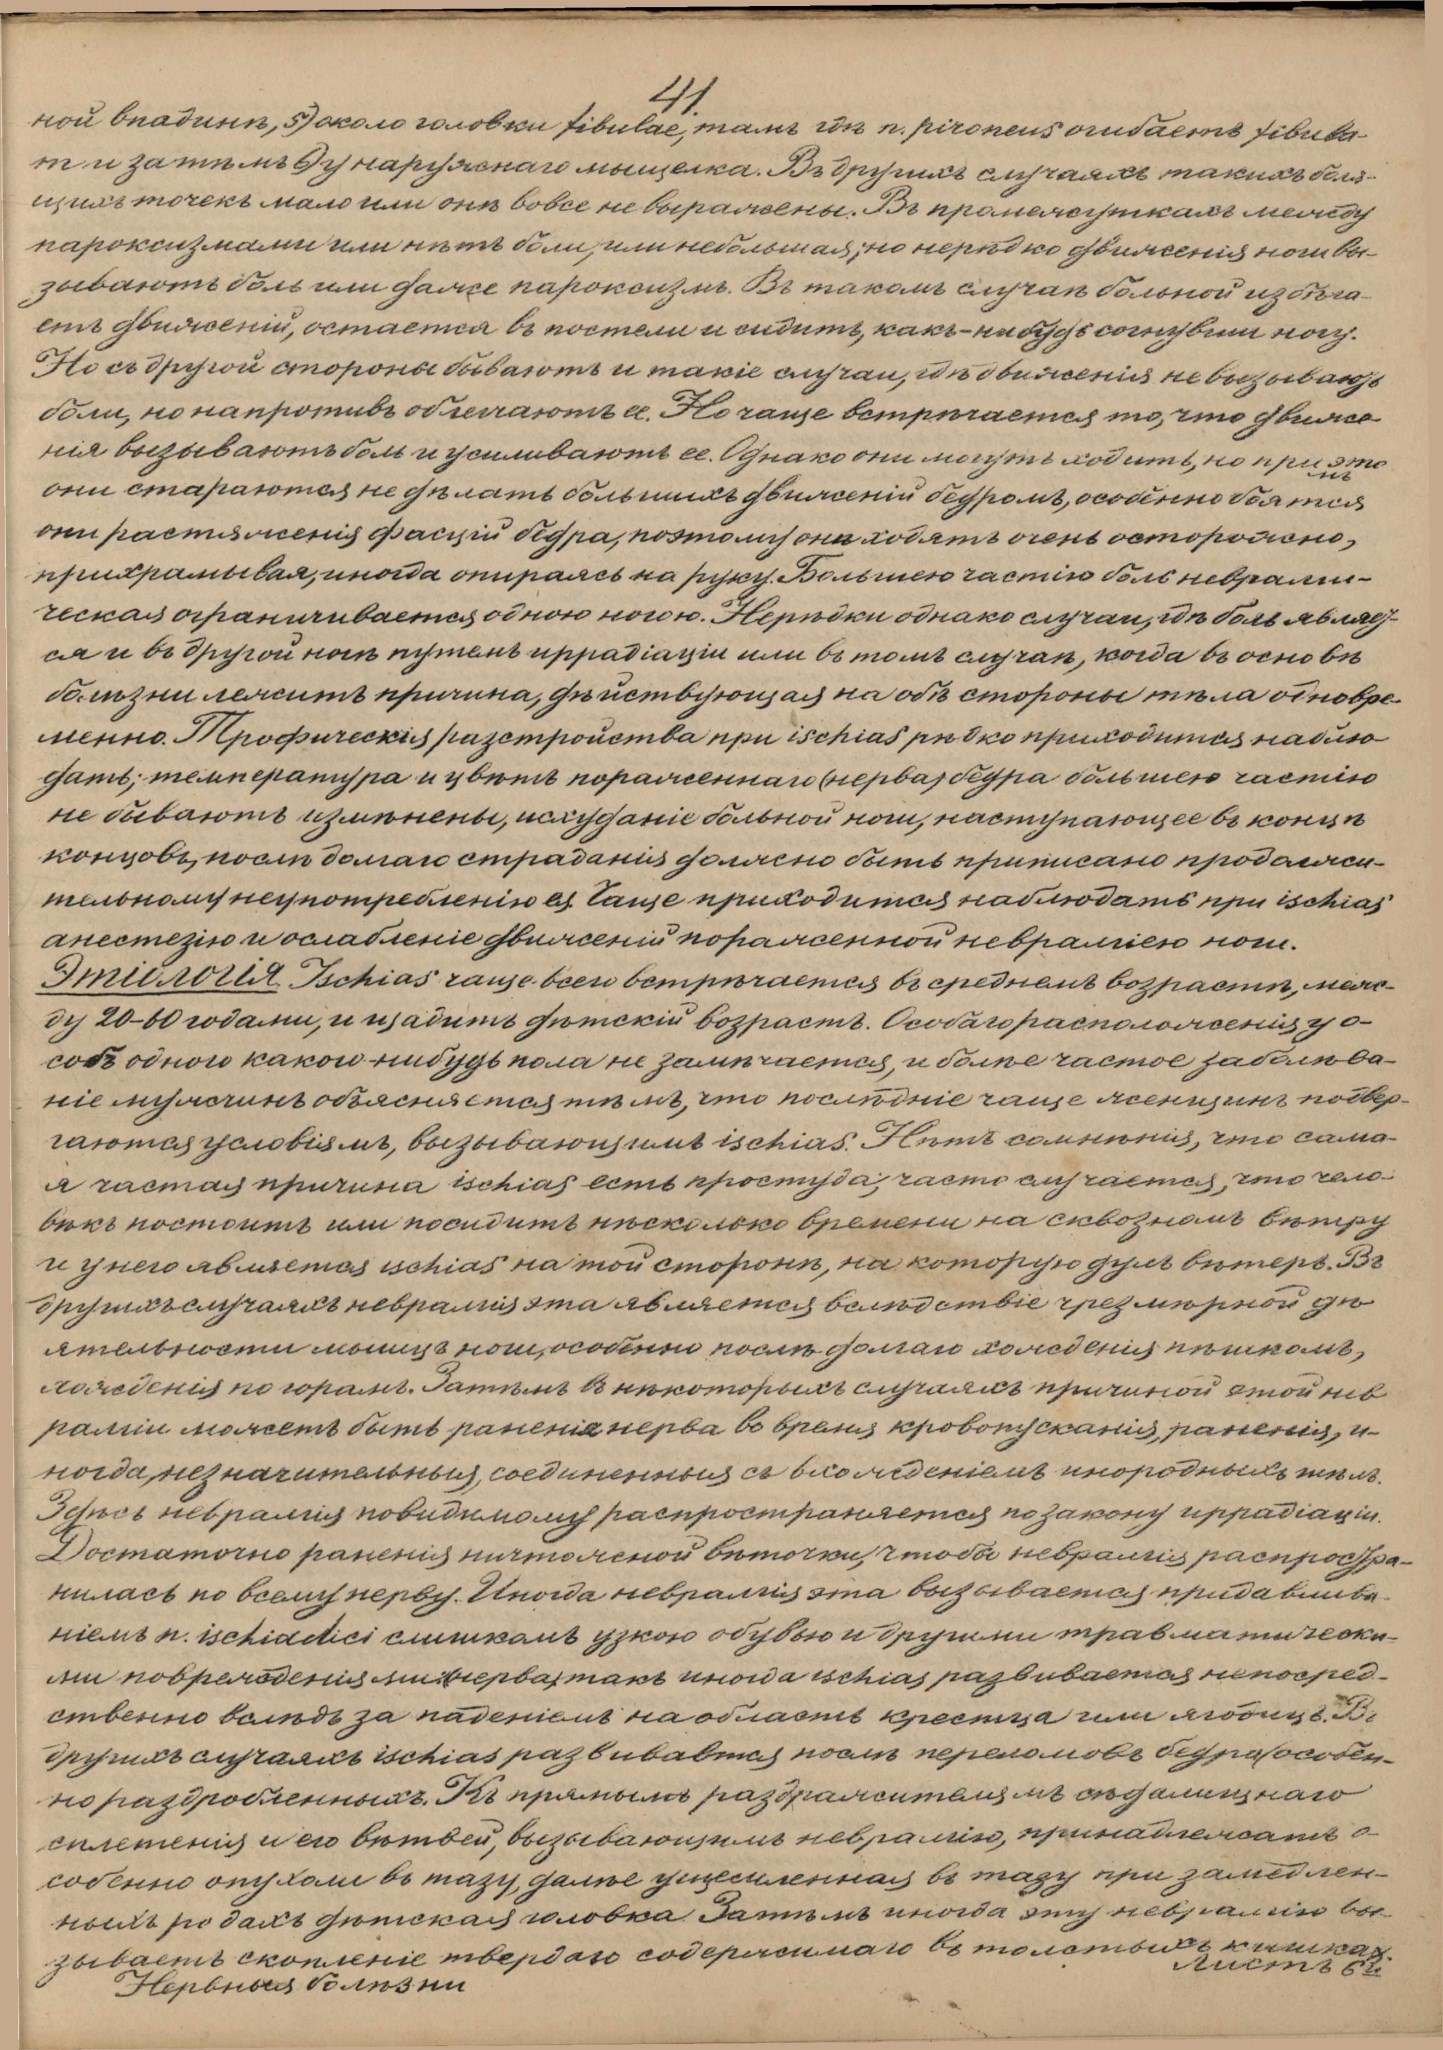 41.
ной впадинѣ, 5) около головки fibulae, тамъ гдѣ n. pironeus огибаетъ fibula-
m и затѣмъ 6) у наружнаго мыщелка. Въ другихъ случаяхъ такихъ боля-
щихъ точекъ мало или онѣ вовсе не выражены. Въ промежуткахъ между
пароксизмами или нѣтъ боли, или небольшая; но нерѣдко движенія ноги вы-
зываютъ боль или даже пароксизмъ. Въ такомъ случаѣ больной избѣга-
етъ движеній, остается въ постели и сидитъ, какъ-нибудь согнувши ногу.
Но съ другой стороны бываютъ и такіе случаи, гдѣ движенія не вызываютъ
боли, но напротивъ облегчаютъ ее. Но чаще встрѣчается то, что движе-
нія вызываютъ боль и усиливаютъ ее. Однако они могутъ ходить, но при это
мъ
они стараются не дѣлать большихъ движеній бедромъ, особенно боятся
они растяженія фасцій бедра, поэтому они ходятъ очень осторожно,
прихрамывая, иногда опираясь на руку. Большею частію боль невралги-
ческая ограничивается одною ногою. Нерѣдки однако случаи, гдѣ боль являет-
ся и въ другой ногѣ путемъ иррадіаціи или въ томъ случаѣ, когда въ основѣ
болѣзни лежитъ причина, дѣйствующая на обѣ стороны тѣла одновре-
менно. Трофическія разстройства при ischias рѣдко приходится наблю-
дать; температура и цвѣтъ пораженнаго (нерва) бедра большею частію
не бываютъ измѣнены, исхуданіе больной ноги, наступающее въ концѣ
концовъ, послѣ долгаго страданія должно быть приписано продолжи-
тельному неупотребленію ея. Чаще приходится наблюдать при ischias
анестезію и ослабленіе движеній пораженной невралгіею ноги.
Этіологія. Ischias чаще всего встрѣчается въ среднемъ возрастѣ, меж-
ду 20-60 годами, и щадитъ дѣтскій возрастъ. Особаго расположенія у о-
собъ одного какого-нибудь пола не замѣчается, и болѣе частое заболѣва-
ніе мужчинъ объясняется тѣмъ, что послѣдніе чаще женщинъ подвер-
гаются условіямъ, вызывающимъ ischias. Нѣтъ сомнѣнія, что сама-
я частая причина ischias есть простуда; часто случается, что чело-
вѣкъ постоитъ или посидитъ нѣсколько времени на сквозномъ вѣтру
и у него является ischias на той сторонѣ, на которую дулъ вѣтеръ. Въ
другихъ случаяхъ невралгія эта является вслѣдствіе чрезмѣрной дѣ-
ятельности мышцъ ноги, особенно послѣ долгаго хожденія пѣшкомъ,
хожденія по горамъ. Затѣмъ въ нѣкоторыхъ случаяхъ причиной этой нев
ралгіи можетъ быть раненіе нерва во время кровопусканія, раненія, и-
ногда, незначительныя, соединенныя съ вхожденіемъ инородныхъ тѣлъ.
Здѣсь невралгія повидимому распространяется по закону иррадіаціи.
Достаточно раненія ничтожной вѣточки, чтобы невралгія распростра-
нилась по всему нерву. Иногда невралгія эта вызывается придавлива-
ніемъ n. ischiadici слишкомъ узкою обувью и другими травматически-
ми поврежденіями (нерва), такъ иногда ischias развивается непосред-
ственно вслѣдъ за паденіемъ на область крестца или ягодицъ. Въ
другихъ случаяхъ ischias развивается послѣ переломовъ бедра (особен-
но раздробленныхъ. Къ прямымъ раздражителямъ сѣдалищнаго
сплетенія и его вѣтвей, вызывающимъ невралгію, принадлежатъ о-
собенно опухоли въ тазу, далѣе ущемленная въ тазу при замедлен-
ныхъ родахъ дѣтская головка. Затѣмъ иногда эту невралгію вы-
зываетъ скопленіе твердаго содержимаго въ толстыхъ кишкахъ.
Нервныя болѣзни
Листъ 6й